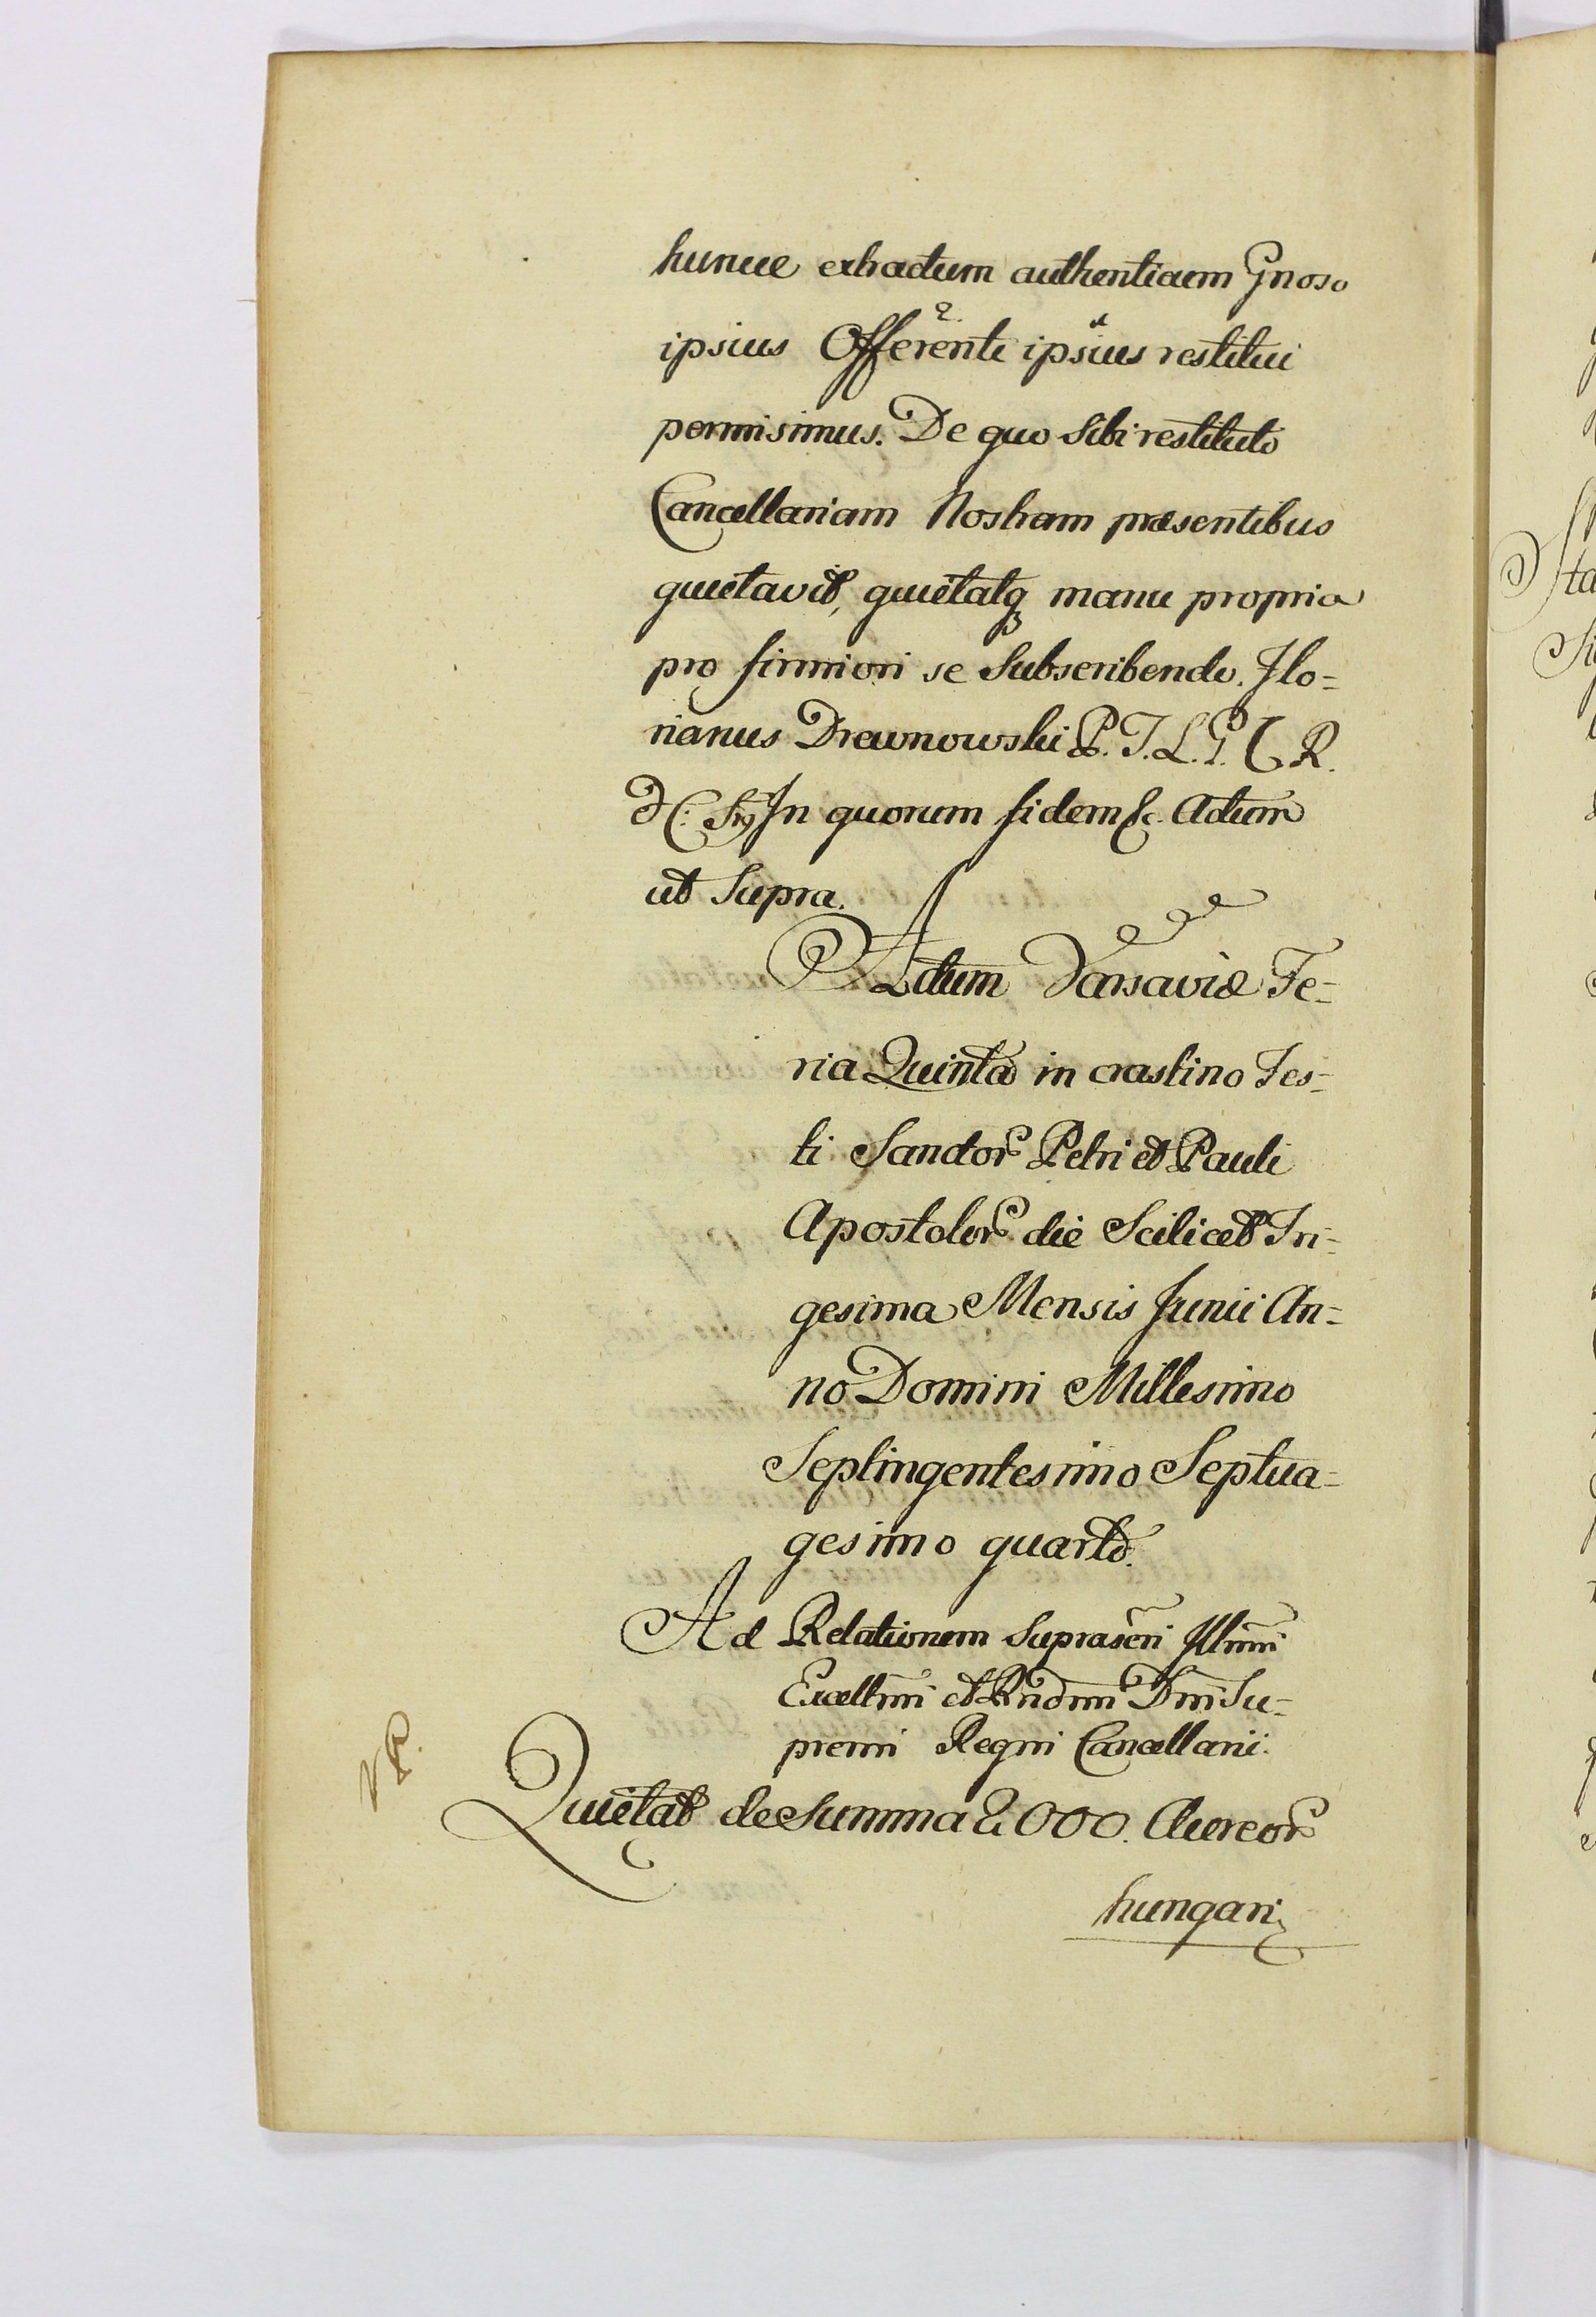 hunce extractum authenticum Gnoso
ipsius Offerenti ipsius restitui
permisimus. De quo sibi restituto
Cancellariam Nostram præsentibus
quietavit, quietatq manu propria
pro firmiori se Subscribendo. Flo=
rianus Drewnowski P. T. L. G. C. R.
In quorum fidem &c. Actum
ut Supra.
Actum Varsaviæ Fe=
ria Quinta in crastino Fes=
ti Sanctor Petri et Pauli
Apostolor die Scilicet Tri=
gesima Mensis Junii An=
no Domini Millesimo
Septingentesimo Septua=
gesimo quarto.
Ad Relationem Suprascri Illmi
Excellmi et Rndmi Dni Su=
premi Regni Cancellarii.
Quietat de Summa 2000. Aureor
hungari